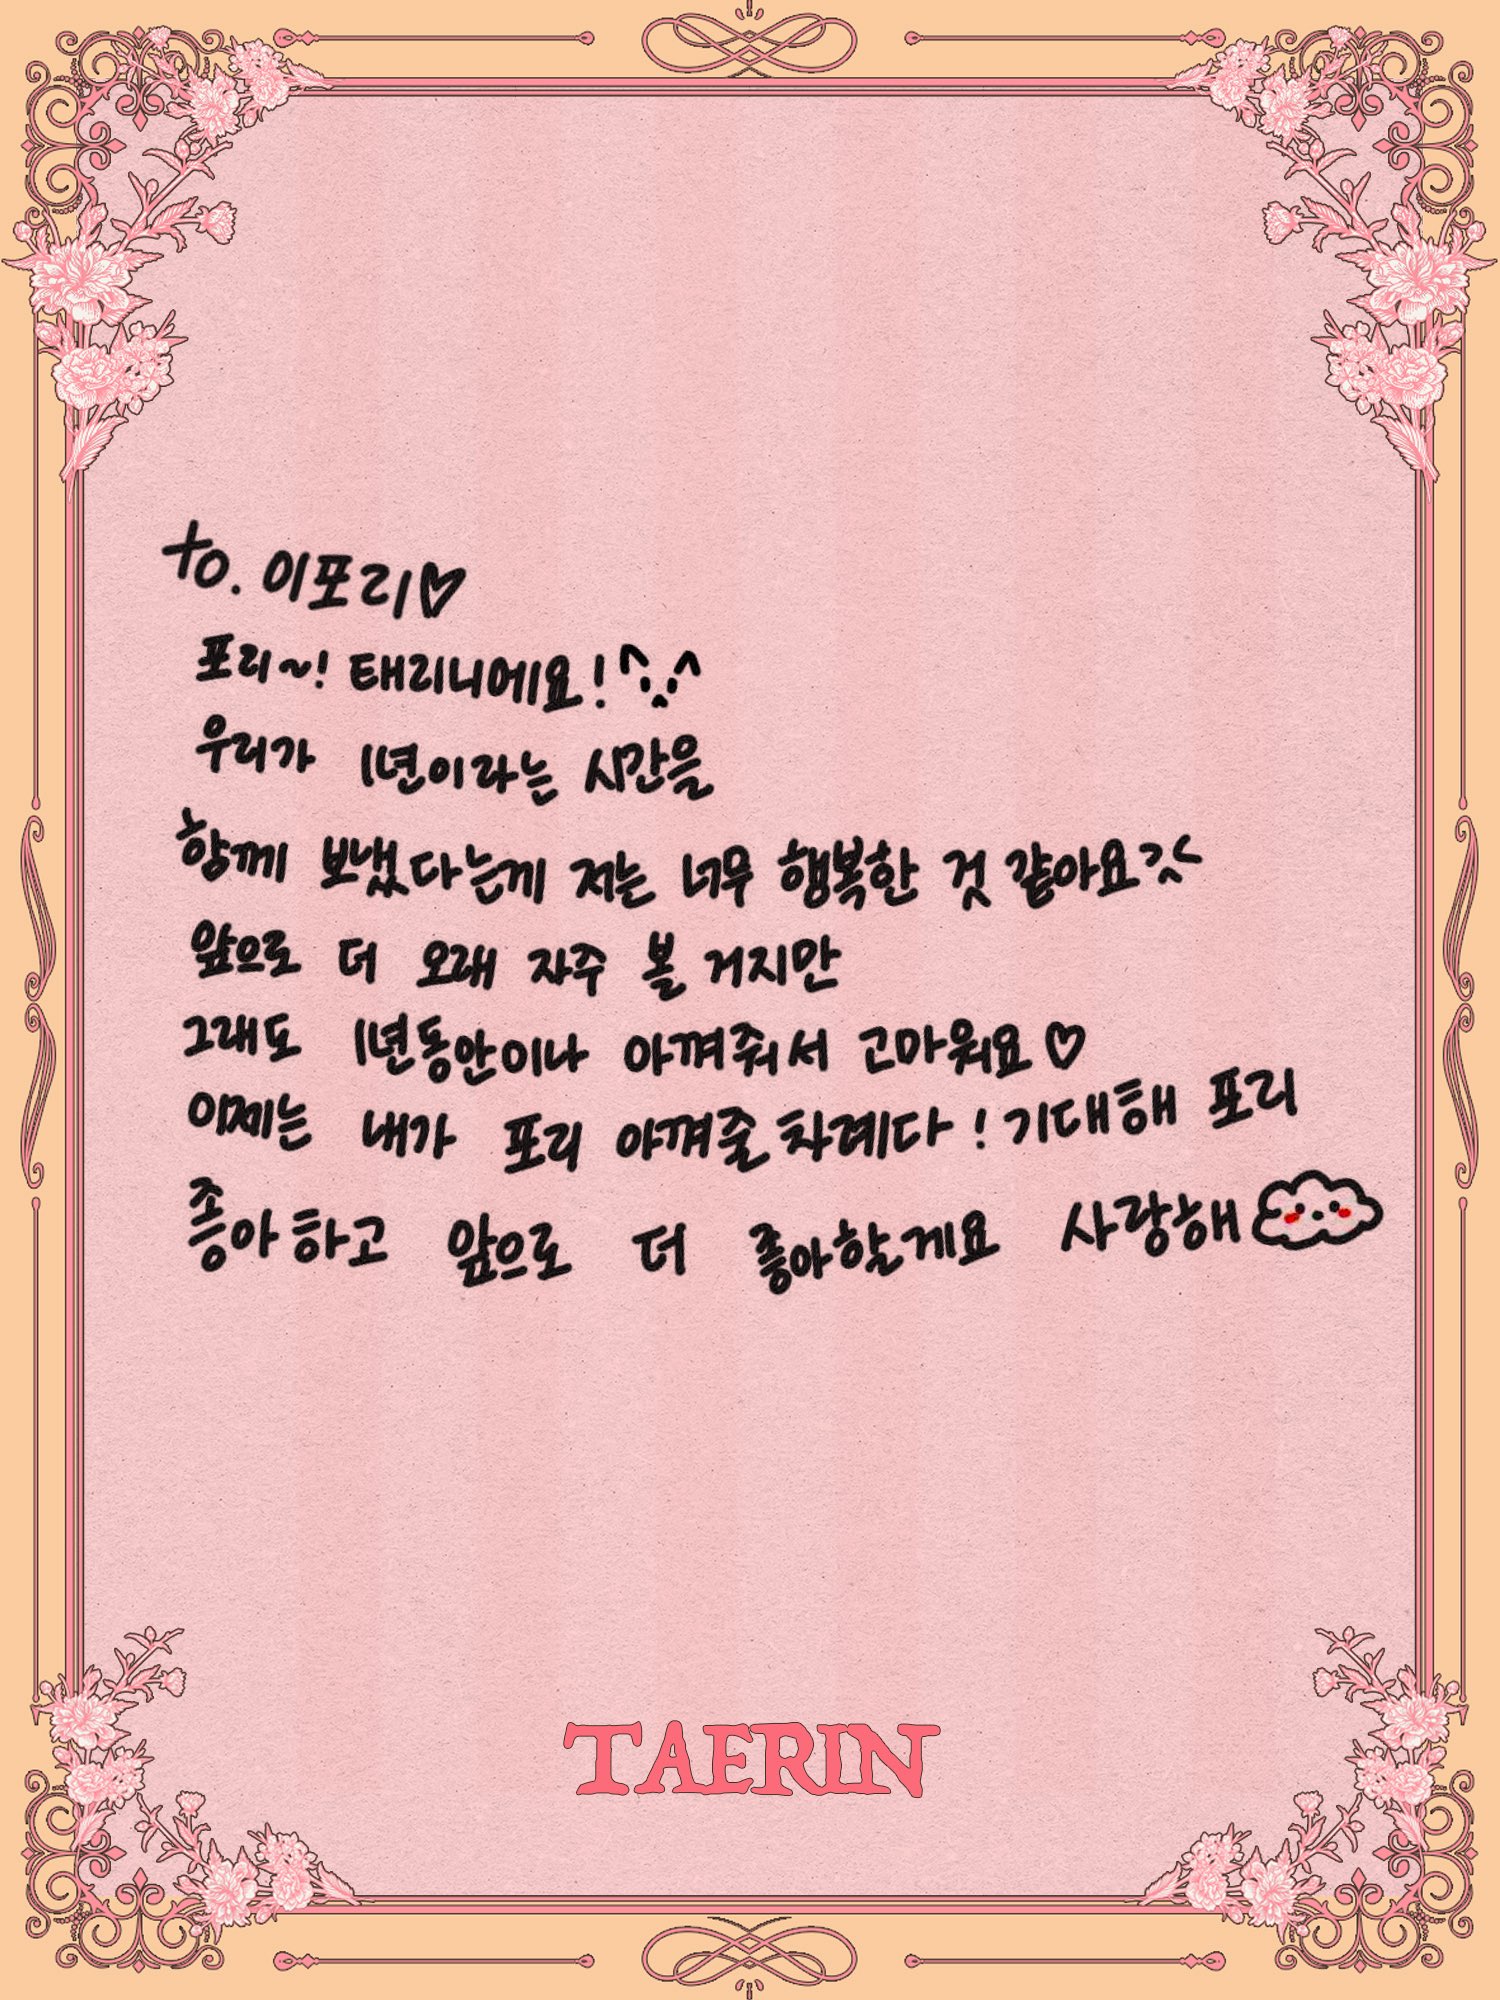 to. 이포리♡
포리~! 태리니에요!^._.^
우리가 1년이라는 시간을
함께 보냈다는게 저는 너무 행복한 것 같아요><
앞으로 더 오래 자주 볼 거지만
그래도 1년동안이나 아껴줘서 고마워요♡
이제는 내가 포리 아껴줄 차례다! 기대해 포리
좋아하고 앞으로 더 좋아할게요 사랑해
TAERIN